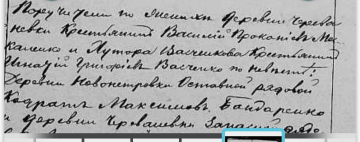 Поручители по женихѣ: деревни Черева
невки Крестьянинъ Василій Прокопіевъ Ма
каленко и Хутора Васченкова Крестьянинъ
Игнатій Григоріевъ Васченко по невѣстѣ:
деревни Новопетровки Отставной рядовой
Кодратъ Максимовъ Бондаренко
и деревни Череваневки Запасный рядо